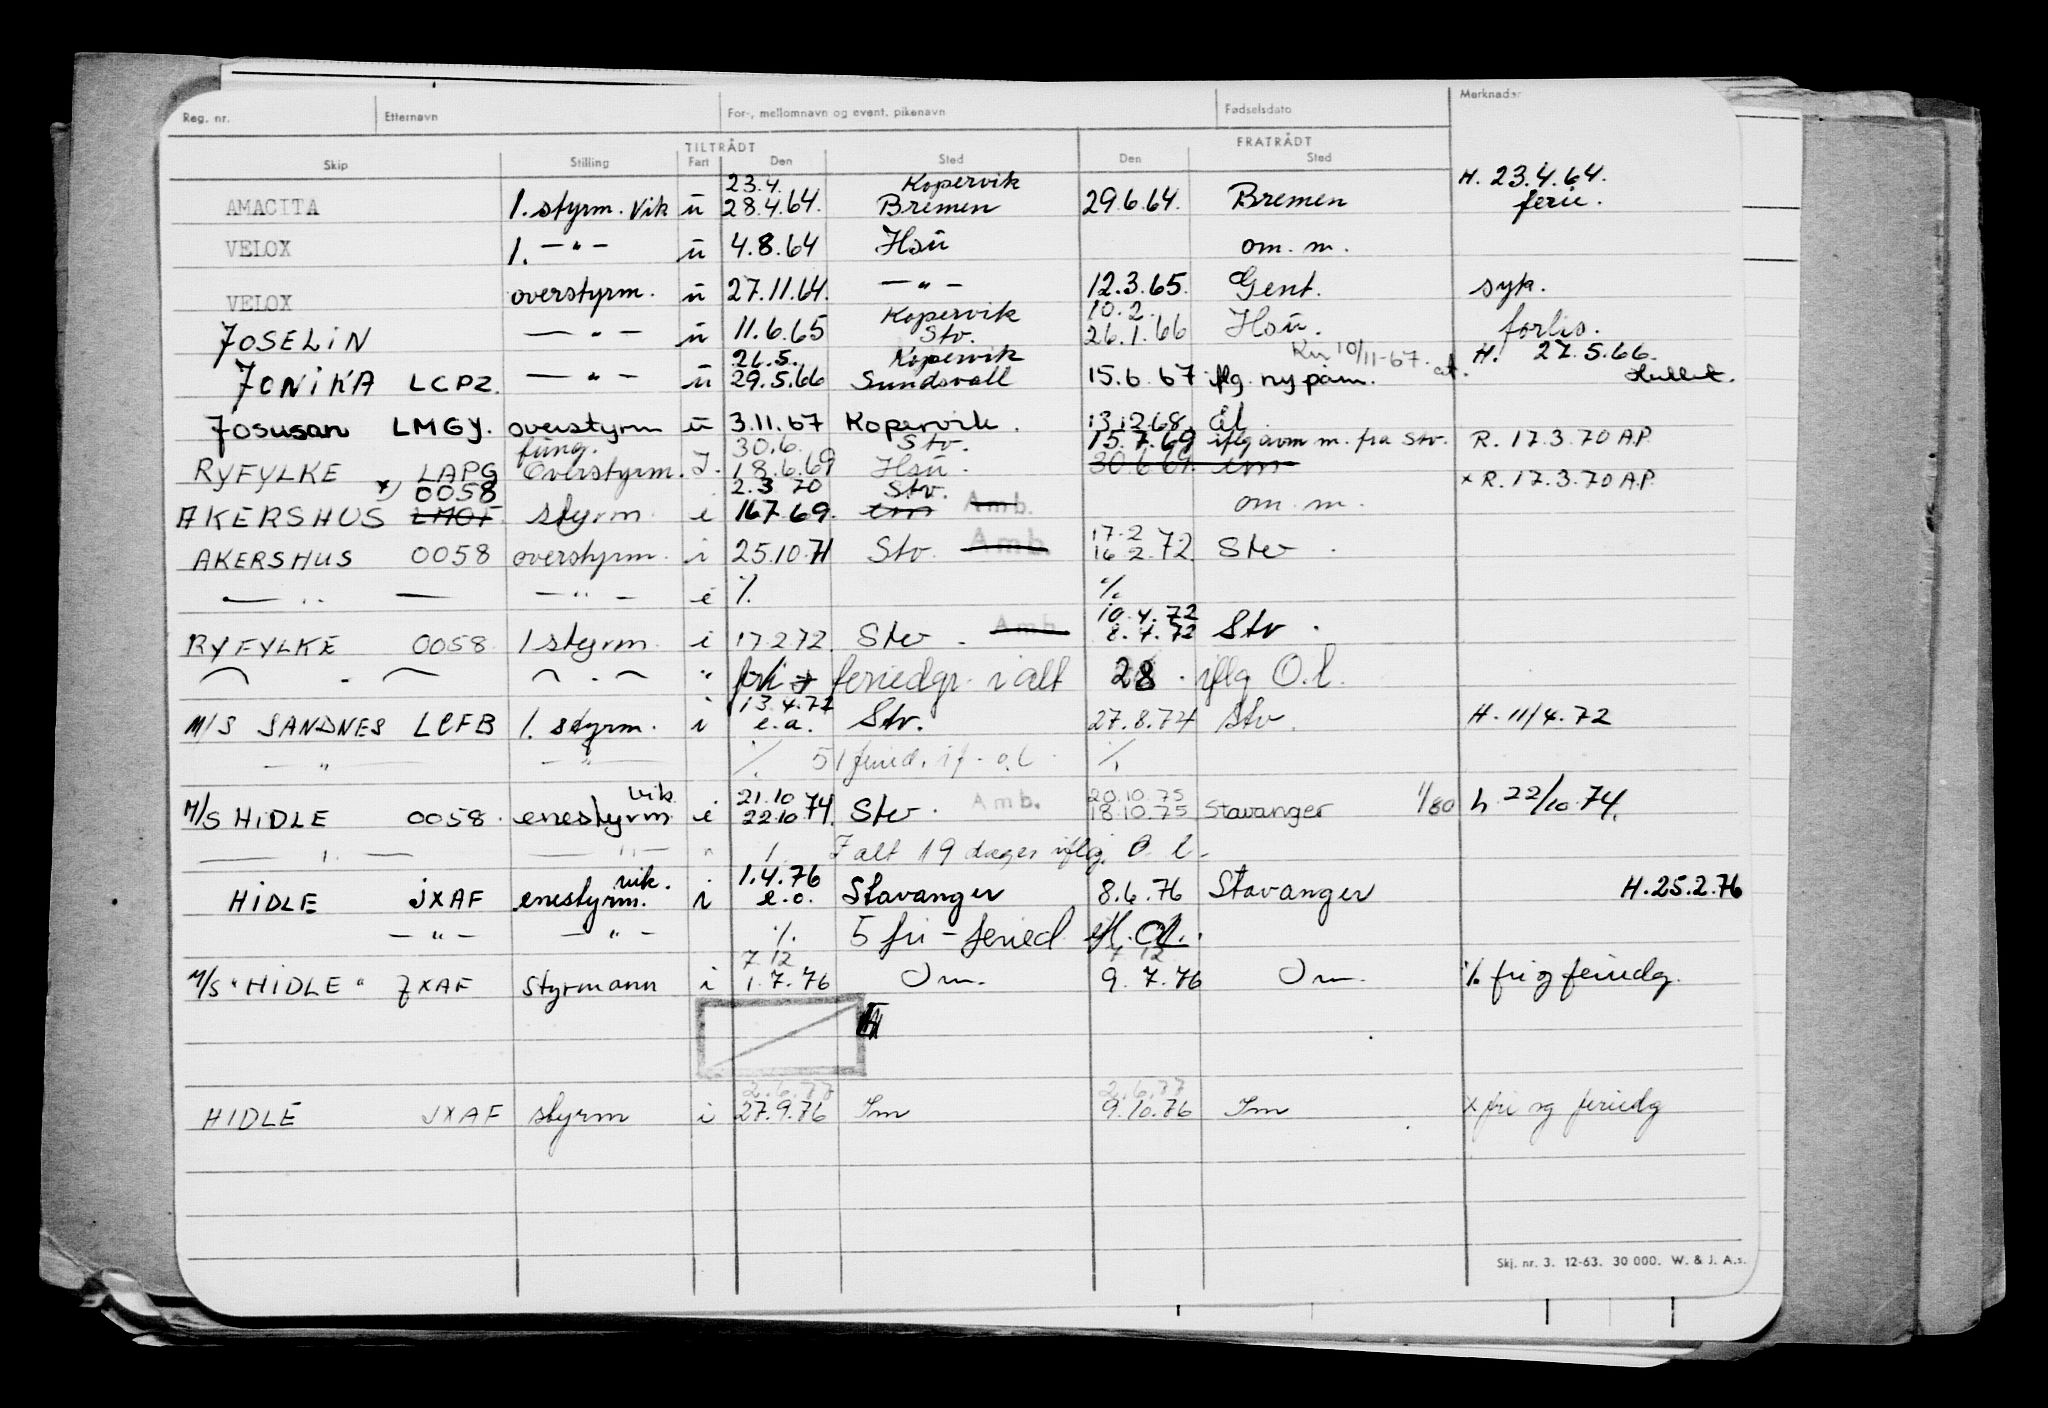 Reg. nr. Etternavn For-, mellomnavn og event. pikenavn Fødselsdato Merknader
TILTRÅDT FRATRÅDT
Skip Stilling Fart Den Sted Den Sted
23.4. Kopervik H. 23.4.64.
AMACITA 1. styrm. Vik u 28.4.64. Bremen 29.6.64. Bremen ferie.
VELOX 1. — " — u 4.8.64 Hsu om. m.
VELOX overstyrm. u 27.11.64. — " — 12.3.65. Gent. syk.
Kopervik 10.2.
JOSELIN — " — u 11.6.65 Stv. 26.1.66 Hsu. forlis.
26.5. Kopervik 10/11-67. H. 27.5.66.
JONIKA LCPZ. — " — u 29.5.66 Sundsvall 15.6.67 iflg. ny påm.
Josusan LMGY. overstyrm u 3.11.67 Kopervik. 13.12.68.
fung. 30.6. Stv. 15.7.69 iflg avm m. fra Stv. R. 17.3.70 A.P.
RYFYLKE LAPG Overstyrm. I. 18.6.69 Hsu. 30.6.69.
x) 0058 2.3 70 Stv. x R. 17.3.70 A.P.
AKERSHUS styrm i 16.7.69. Amb. om. m.
17.2
AKERSHUS 0058 overstyrm. i 25.10.71 Stv. Amb. 16.2.72 Stv.
— " — — " — i %. %.
10.4.72
RYFYLKE 0058 1 styrm. i 17.2.72. Stv. Amb. 8.4.72 Stv.
— " — — " — " feriedgr. i alt 28. iflg O.l.
13.4.72
M/S SANDNES LCFB 1. styrm. i e.a. Stv. 27.8.74 Stv. H. 11/4.72
— " — — " — %. 51 feried. if. o.l. %.
Vik. 21.10 20.10.75
M/S HIDLE 0058. enestyrm i 22.10 74. Stv. Amb. 18.10.75 Stavanger 1/80 h. 22/10.74.
— " — — " — " I alt 19 dager iflg. O.l.
vik. 1.4.76
HIDLE JXAF enestyrm. i e.o. Stavanger 8.6.76 Stavanger H.25.2.76
— " — — " — %. 5 fri-feried ifl. Ol.
7 12 7 12
M/S "HIDLE" JXAF styrmann i 1.7.76 Om. 9.7.76 Om. %. fri og feriedg.
2.6.77 2.6.77
HIDLE JXAF styrm i 27.9.76 Im 9.10.76 Im x fri og feriedg
Skj. nr. 3. 12-63. 30 000. W. & J. A.s.